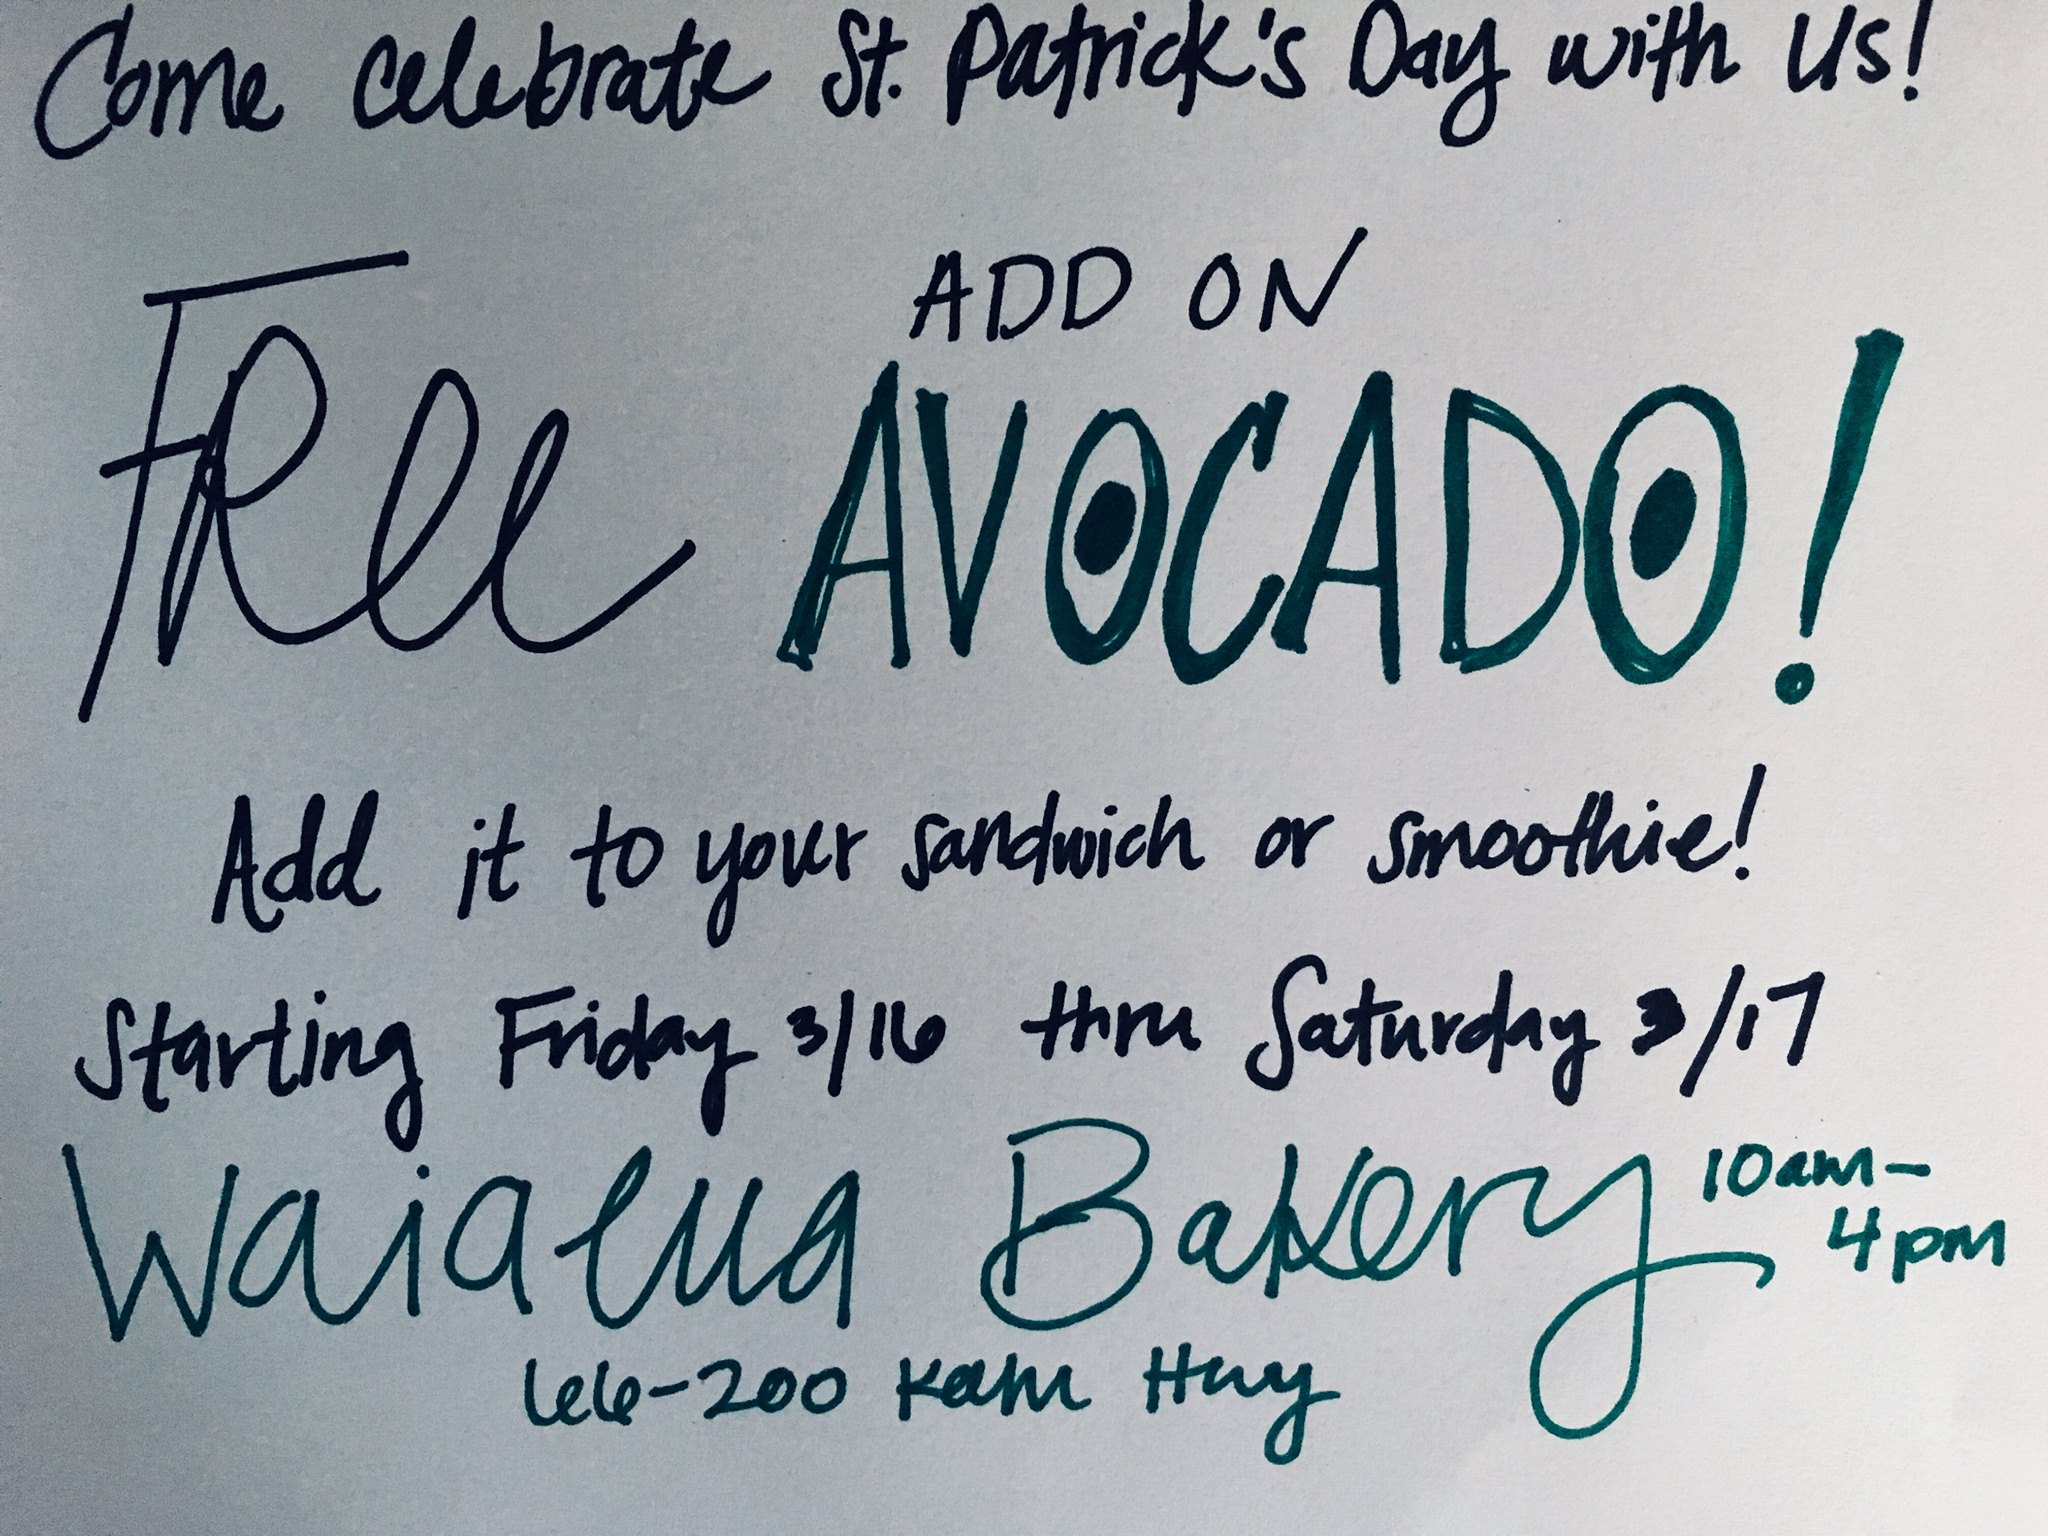 Come celebrate St. Patrick's Day with Us!
FRee ADD ON
AVOCADO!
Add it to your sandwich or smoothie!
Starting Friday 3/16 thru Saturday 3/17
Waialua Bakery 10am-
4pm
66-200 Kam Hwy